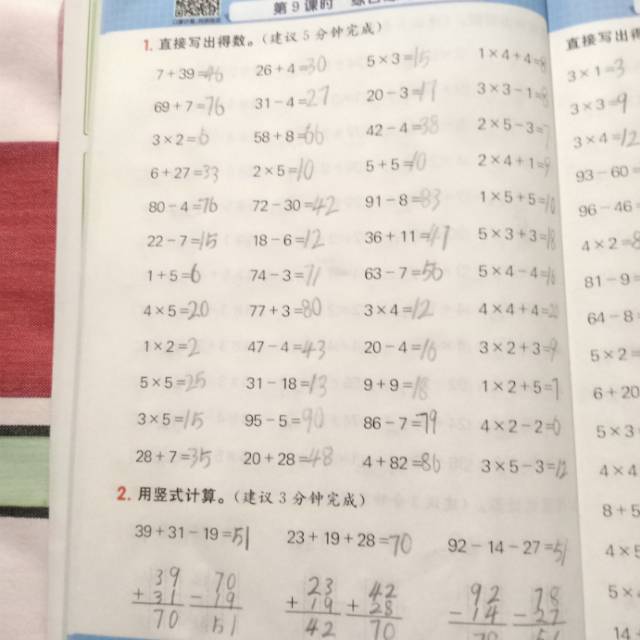 第9课时
1. 直接写出得数。(建议5分钟完成)
7+39=46 26+4=30 5×3=15 1×4+4=8
69+7=76 31-4=27 20-3=17 3×3-1=8
3×2=6 58+8=66 42-4=38 2×5-3=7
6+27=33 2×5=10 5+5=10 2×4+1=9
80-4=76 72-30=42 91-8=83 1×5+5=10
22-7=15 18-6=12 36+11=47 5×3+3=18
1+5=6 74-3=71 63-7=56 5×4-4=16
4×5=20 77+3=80 3×4=12 4×4+4=20
1×2=2 47-4=43 20-4=16 3×2+3=9
5×5=25 31-18=13 9+9=18 1×2+5=7
3×5=15 95-5=90 86-7=79 4×2-2=6
28+7=35 20+28=48 4+82=86 3×5-3=12
2. 用竖式计算。(建议3分钟完成)
39+31-19=51 23+19+28=70 92-14-27=51
39 70 23 42 92 78
+31 -19 +19 +28 -14 -27
70 51 42 70
直接写出得
3×1=3
3×3=9
3×4=12
93-60=
96-46=
4×2=8
81-9=
64-8
5×2=
6+20
5×3
4×4
8+5
4×5
5×
14